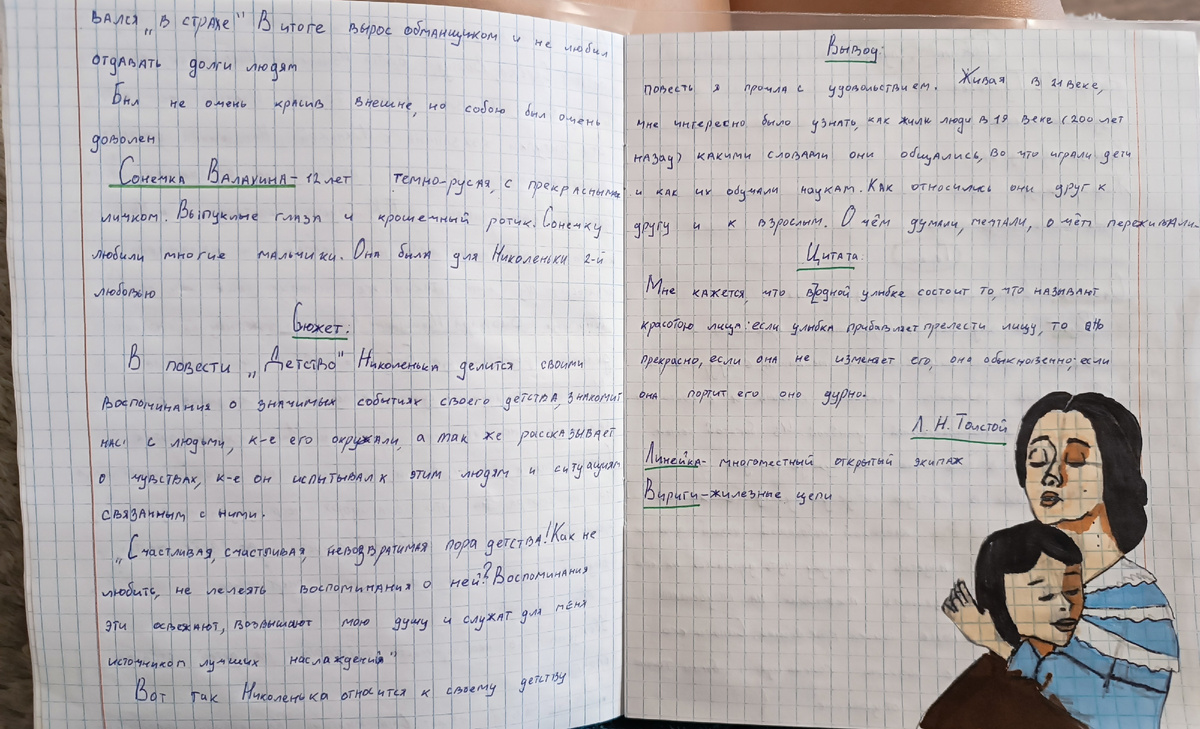 вался „в страхе" В итоге вырос обманщиком и не любил
отдавать долги людям
Был не очень красив внешне, но собою был очень
доволен
Сонечка Валахина - 12 лет темно-русая, с прекрасным
личиком. Выпуклые глаза и крошечный ротик. Сонечку
любили многие мальчики. Она была для Николеньки 2-й
любовью
Сюжет:
В повести „Детство" Николенька делится своими
воспоминания о значимых событиях своего детства, знакомит
нас с людьми, к-е его окружали, а так же рассказывает
о чувствах, к-е он испытывал к этим людям и ситуациям
связанным с ними.
„Счастливая, счастливая, невозвратимая пора детства! Как не
любить, не лелеять воспоминания о ней? Воспоминания
эти освежают, возвышают мою душу и служат для меня
источником лучших наслаждений"
Вот так Николенька относится к своему детству
Вывод:
повесть я прочла с удовольствием. Живая в 21 веке,
мне интересно было узнать, как жили люди в 19 веке (200 лет
назад) какими словами они общались, во что играли дети
и как их обучали наукам. Как относились они друг к
другу и к взрослым. О чём думали, мечтали, о чём переживали.
Цитата:
Мне кажется, что в одной улыбке состоит то, что называют
красотою лица: если улыбка прибавляет прелести лицу, то
прекрасно, если она не изменяет его, она обыкновенно; если
она портит его оно дурно.
Л. Н. Толстой
Линейка - многоместный открытый экипаж
Вириги - жилезные цепи